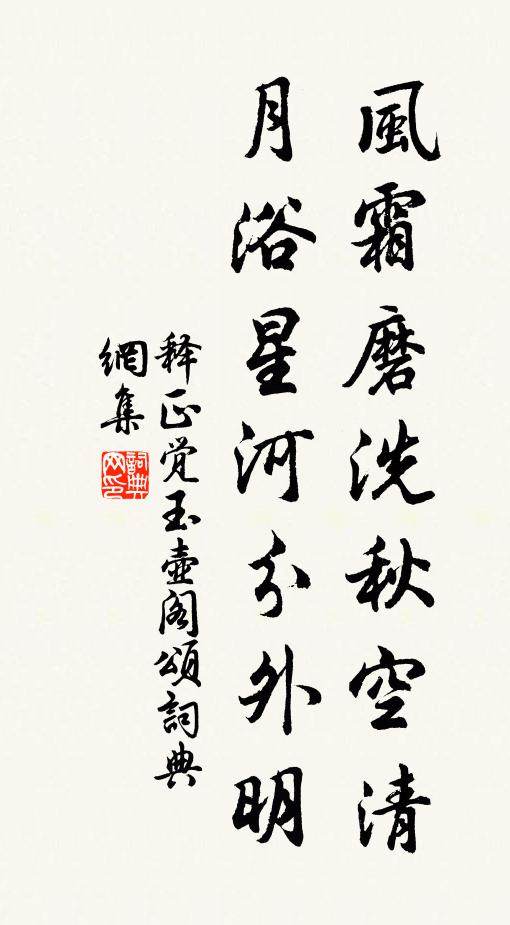 風霜磨洗秋空清
月浴星河分外明
释正覺玉壺阁頌詞典
網集
詞典网印